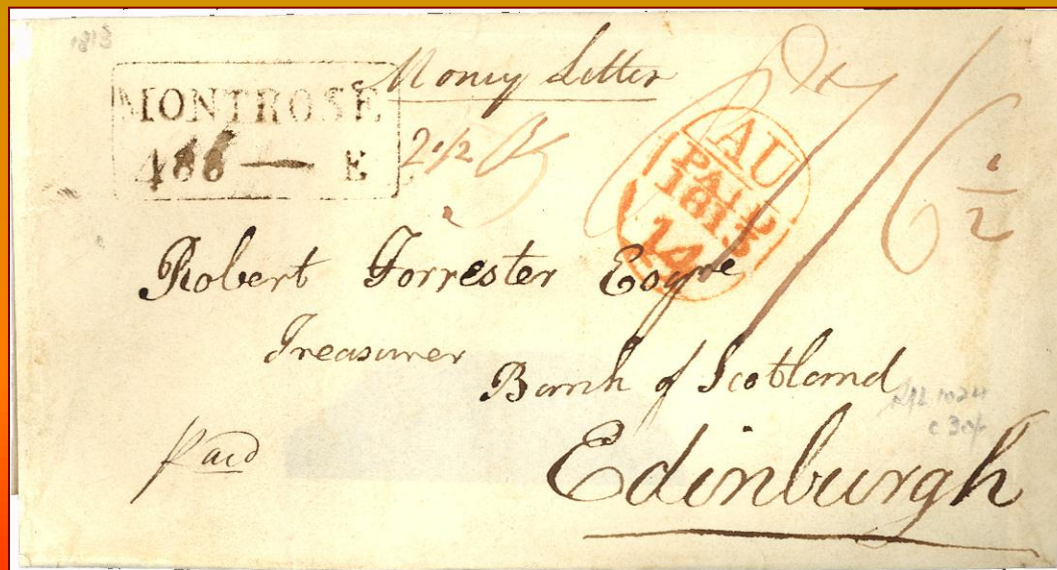 1813
MONTROSE
486 — E
Money Letter
2 1/2 Oz
AU
PAID
1813
14
7/6 1/2
Robert Forrester Esqre
Treasurer
Bank of Scotland
Paid
Edinburgh